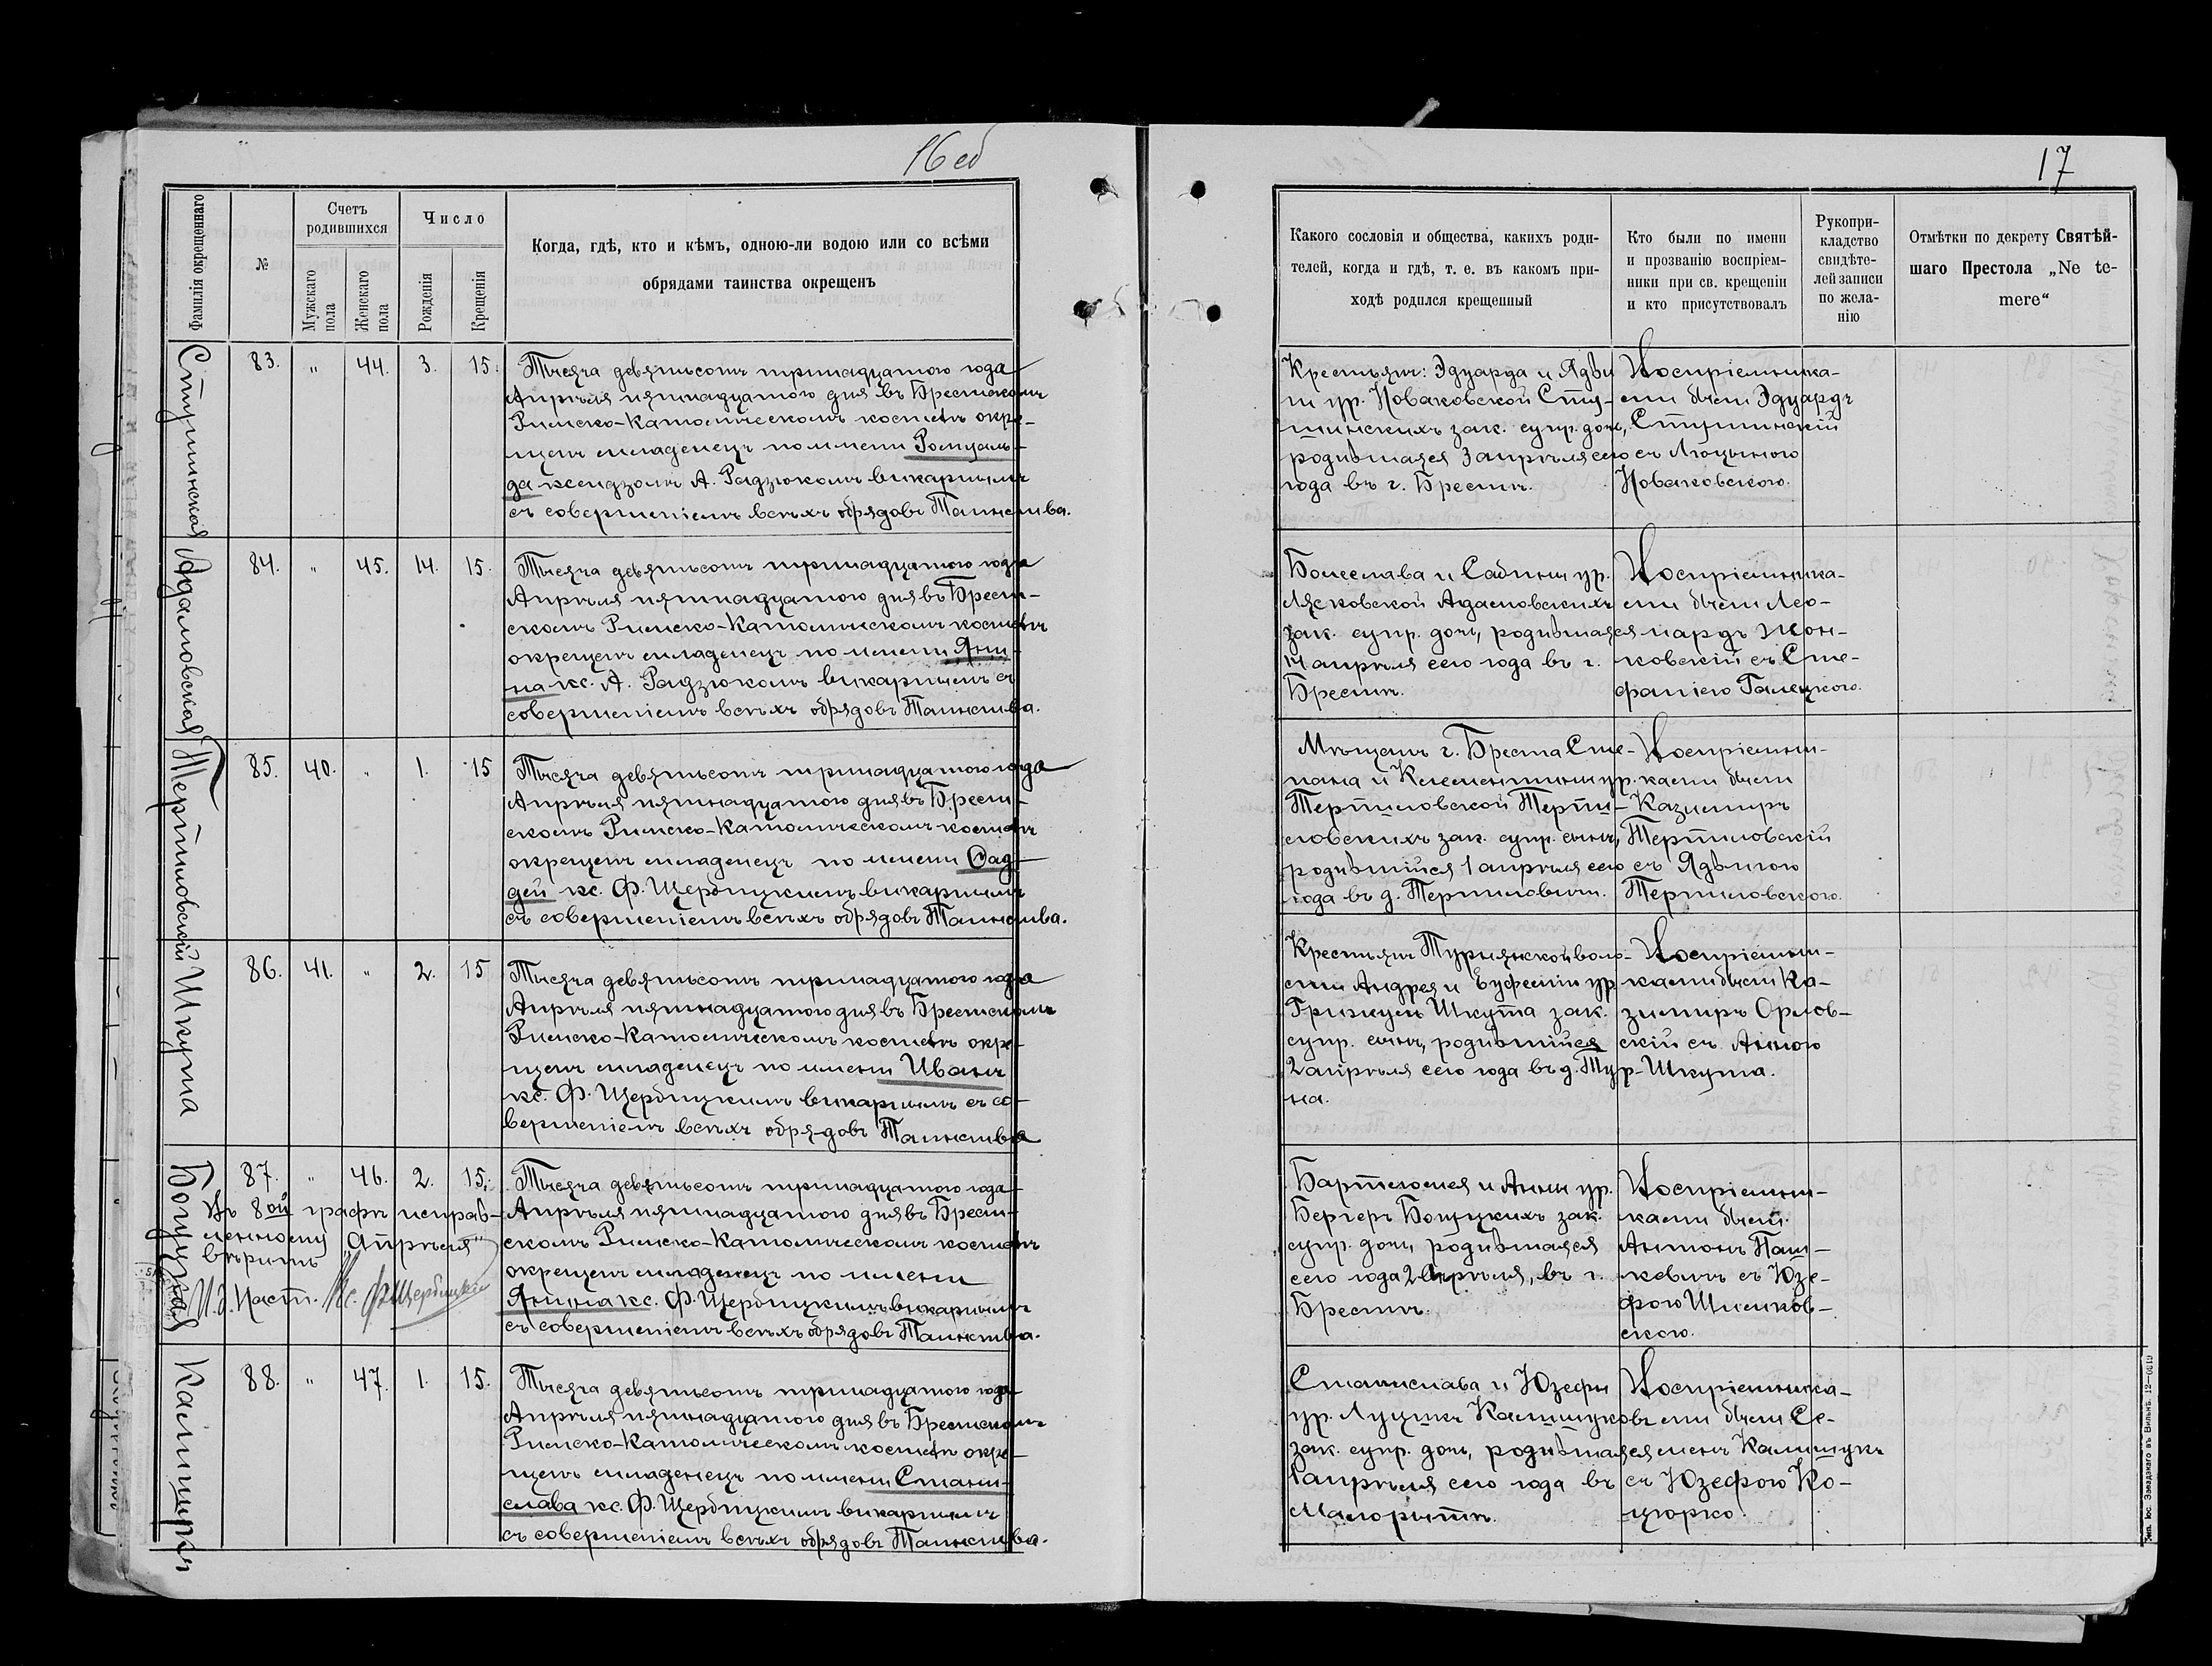 16 об
Фамилія окрещеннаго
№
Счетъ
родившихся
Мужскаго
пола
Женскаго
пола
Число
Рожденія
Крещенія
Когда, гдѣ, кто и кѣмъ, одною-ли водою или со всѣми
обрядами таинства окрещенъ
83. " 44. 3. 15.
Тысяча девятьсотъ тринадцатого года
Апрѣля пятнадцатого дня въ Брестскомъ
Римско-Католическомъ костелѣ окре-
щенъ младенецъ по имени Ромуаль-
да ксендзомъ А. Радзюкомъ викарнымъ
съ совершеніемъ всѣхъ обрядовъ Таинства.
Адамовская
84. " 45. 14. 15.
Тысяча девятьсотъ тринадцатого года
Апрѣля пятнадцатого дня въ Брест-
скомъ Римско-Католическомъ костелѣ
окрещенъ младенецъ по имени Яни-
на кс. А. Радзюкомъ викарнымъ съ
совершеніемъ всѣхъ обрядовъ Таинства.
Терпиловскій
85. 40. " 1. 15
Тысяча девятьсотъ тринадцатого года
Апрѣля пятнадцатого дня въ Брест-
скомъ Римско-Католическомъ костелѣ
окрещенъ младенецъ по имени Ѳад-
дей кс. Ф. Щербицкимъ викарнымъ
съ совершеніемъ всѣхъ обрядовъ Таинства.
Шкута
86. 41. " 2. 15
Тысяча девятьсотъ тринадцатого года
Апрѣля пятнадцатого дня въ Брестскомъ
Римско-Католическомъ костелѣ окре-
щенъ младенецъ по имени Иванъ
кс. Ф. Щербицкимъ викарнымъ съ со-
вершеніемъ всѣхъ обря-довъ Таинства
87. " 46. 2. 15.
Въ 8ой графѣ исправ-
ленному „Апрѣля"
вѣрить
И. д. Наст. Кс. ФЩербицкій
Тысяча девятьсотъ тринадцатого года
Апрѣля пятнадцатого дня въ Брест-
скомъ Римско-Католическомъ костелѣ
окрещенъ младенецъ по имени
Янина кс. Ф. Щербицкимъ викарнымъ
съ совершеніемъ всѣхъ обрядовъ Таинства.
88. " 47. 1. 15.
Тысяча девятьсотъ тринадцатого года
Апрѣля пятнадцатого дня въ Брестскомъ
Римско-Католическомъ костелѣ окре-
щенъ младенецъ по имени Стани-
слава кс. Ф. Щербицкимъ викарнымъ
съ совершеніемъ всѣхъ обрядовъ Таинства.
17
Какого сословія и общества, какихъ роди-
телей, когда и гдѣ, т. е. въ какомъ при-
ходѣ родился крещенный
Кто были по имени
и прозванію воспріем-
ники при св. крещеніи
и кто присутствовалъ
Рукопри-
кладство
свидѣте-
лей записи
по жела-
нію
Отмѣтки по декрету Святѣй-
шаго Престола „Ne te-
mere“
Крестьянъ: Эдуарда и Ядви
ги ур. Новаковской Сту-
шинскихъ зак. супр. дочь,
родившаяся 3 апрѣля сего
года въ г. Брестѣ.
Воспріемника-
ми были Эдуардъ
Стушинскій
съ Люцыною
Новаковскою.
Болеслава и Сабины ур.
Лясковской Адамовскихъ
зак. супр. дочь, родившаяся
14 апрѣля сего года въ г.
Брестѣ.
Воспріемника-
ми были Лео-
нардъ Жон-
ковскій съ Сте-
фаніею Галецкою.
Мѣщанъ г. Бреста Сте-
пана и Клементины ур.
Терпиловской Терпи-
ловскихъ зак. супр. сынъ,
родившійся 1 апрѣля сего
года въ д. Терпиловичи.
Воспріемни-
ками были
Казимиръ
Терпиловскій
съ Ядвигою
Терпиловскою.
Крестьянъ Турнянской воло-
сти Андрея и Еуфеміи ур.
Гришукъ Шкута зак.
супр. сынъ, родившійся
2 апрѣля сего года въ д. Тур-
на.
Воспріемни-
ками были Ка-
зимиръ Орлов-
скій съ Анною
Шкута.
Бартоломея и Анны ур.
Бергеръ зак.
супр. дочь, родившаяся
сего года 2 Апрѣля, въ г.
Брестѣ.
Воспріемни-
ками были
Антонъ Паш-
кевичъ съ Юзе-
фою Шимков-
скою.
Станислава и Юзефы
ур. Луцикъ Калишуковъ
зак. супр. дочь, родившаяся
1 апрѣля сего года въ
Малоритѣ.
Воспріемника-
ми были Се-
менъ Калишукъ
съ Юзефою Ко-
цюрко.
Тип. Іос. Завадзкаго въ Вильнѣ.